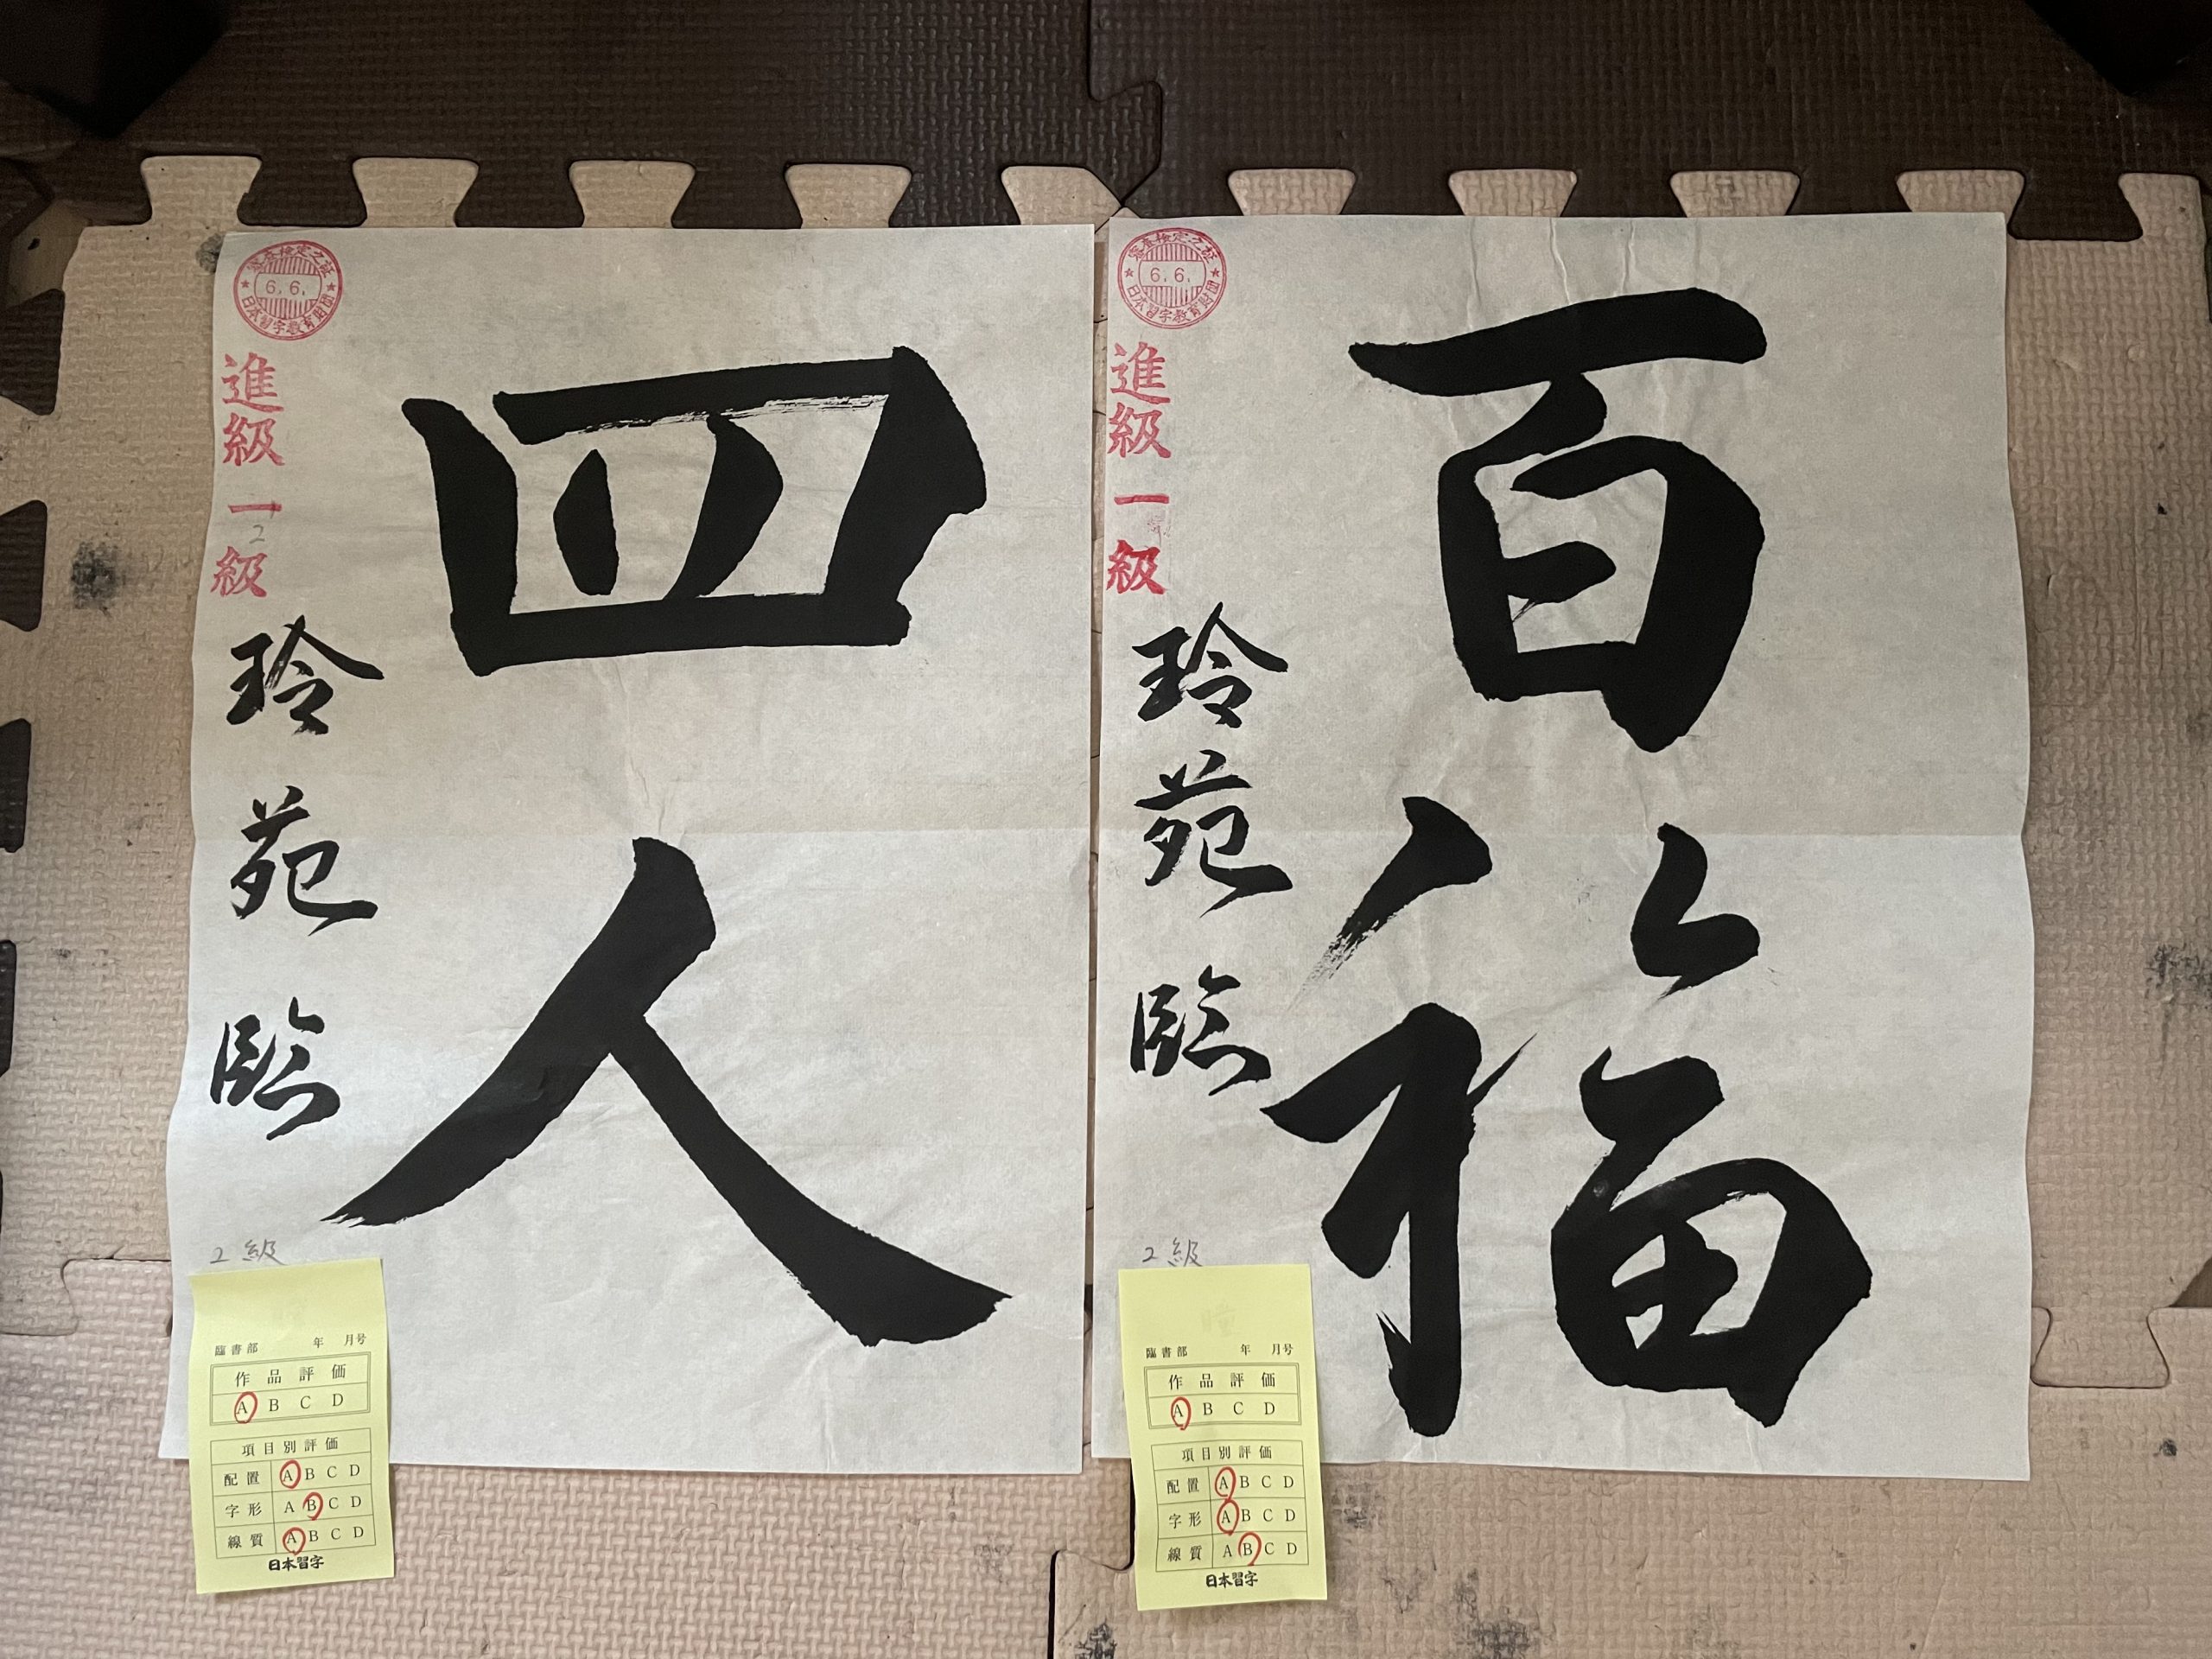 審査検定之証
6. 6.
日本習字教育財団
進級 一級
2
四人
玲苑臨
2級
臨書部 年 月号
作品評価
A B C D
項目別評価
配置 A B C D
字形 A B C D
線質 A B C D
日本習字
審査検定之証
6. 6.
日本習字教育財団
進級 一級
百福
玲苑臨
2級
臨書部 年 月号
作品評価
A B C D
項目別評価
配置 A B C D
字形 A B C D
線質 A B C D
日本習字